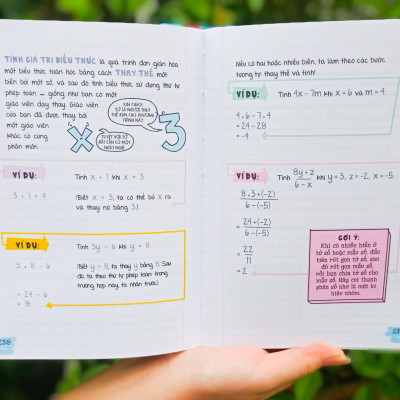 TÍNH GIÁ TRỊ BIỂU THỨC là quá trình đơn giản hóa
một biểu thức toán học bằng cách THAY THẾ một
biến bởi một số, và sau đó tính biểu thức sử dụng thứ tự
phép toán — giống như bạn có một
giáo viên dạy thay. Giáo viên
của bạn đã được thay bởi
một giáo viên
khác có cùng
phân môn.
XIN CHÀO!
X
3
VÍ DỤ:
Tính x + 1 khi x = 3
3 + 1 = 4
(Biết x = 3, ta có thể bỏ x ra
và thay nó bằng 3.)
VÍ DỤ:
Tính 3y – 6 khi y = 8
3 · 8 – 6
(Biết y = 8, ta thay y bằng 8. Sau
đó, ta theo thứ tự phép toán trong
trường hợp này, ta nhân trước.)
= 24 – 6
= 18
Nếu có hai hoặc nhiều biến, ta làm theo các bước
tương tự: thay thế và tính!
VÍ DỤ:
Tính 4x – 7m khi x = 6 và m = 4.
4 · 6 – 7 · 4
= 24 – 28
= –4
VÍ DỤ:
Tính 8y + z / 6 – x khi y = 3, z = –2, x = –5.
8 · 3 + (–2)
6 – (–5)
= 24 + (–2)
6 – (–5)
= 22
11
= 2
GỢI Ý:
Khi có nhiều biến ở
tử số hoặc mẫu số, đầu
tiên rút gọn tử số, sau
đó rút gọn mẫu số,
rồi bạn chia tử số cho
mẫu số. Hãy coi thanh
phân số như là một kí
hiệu nhóm.